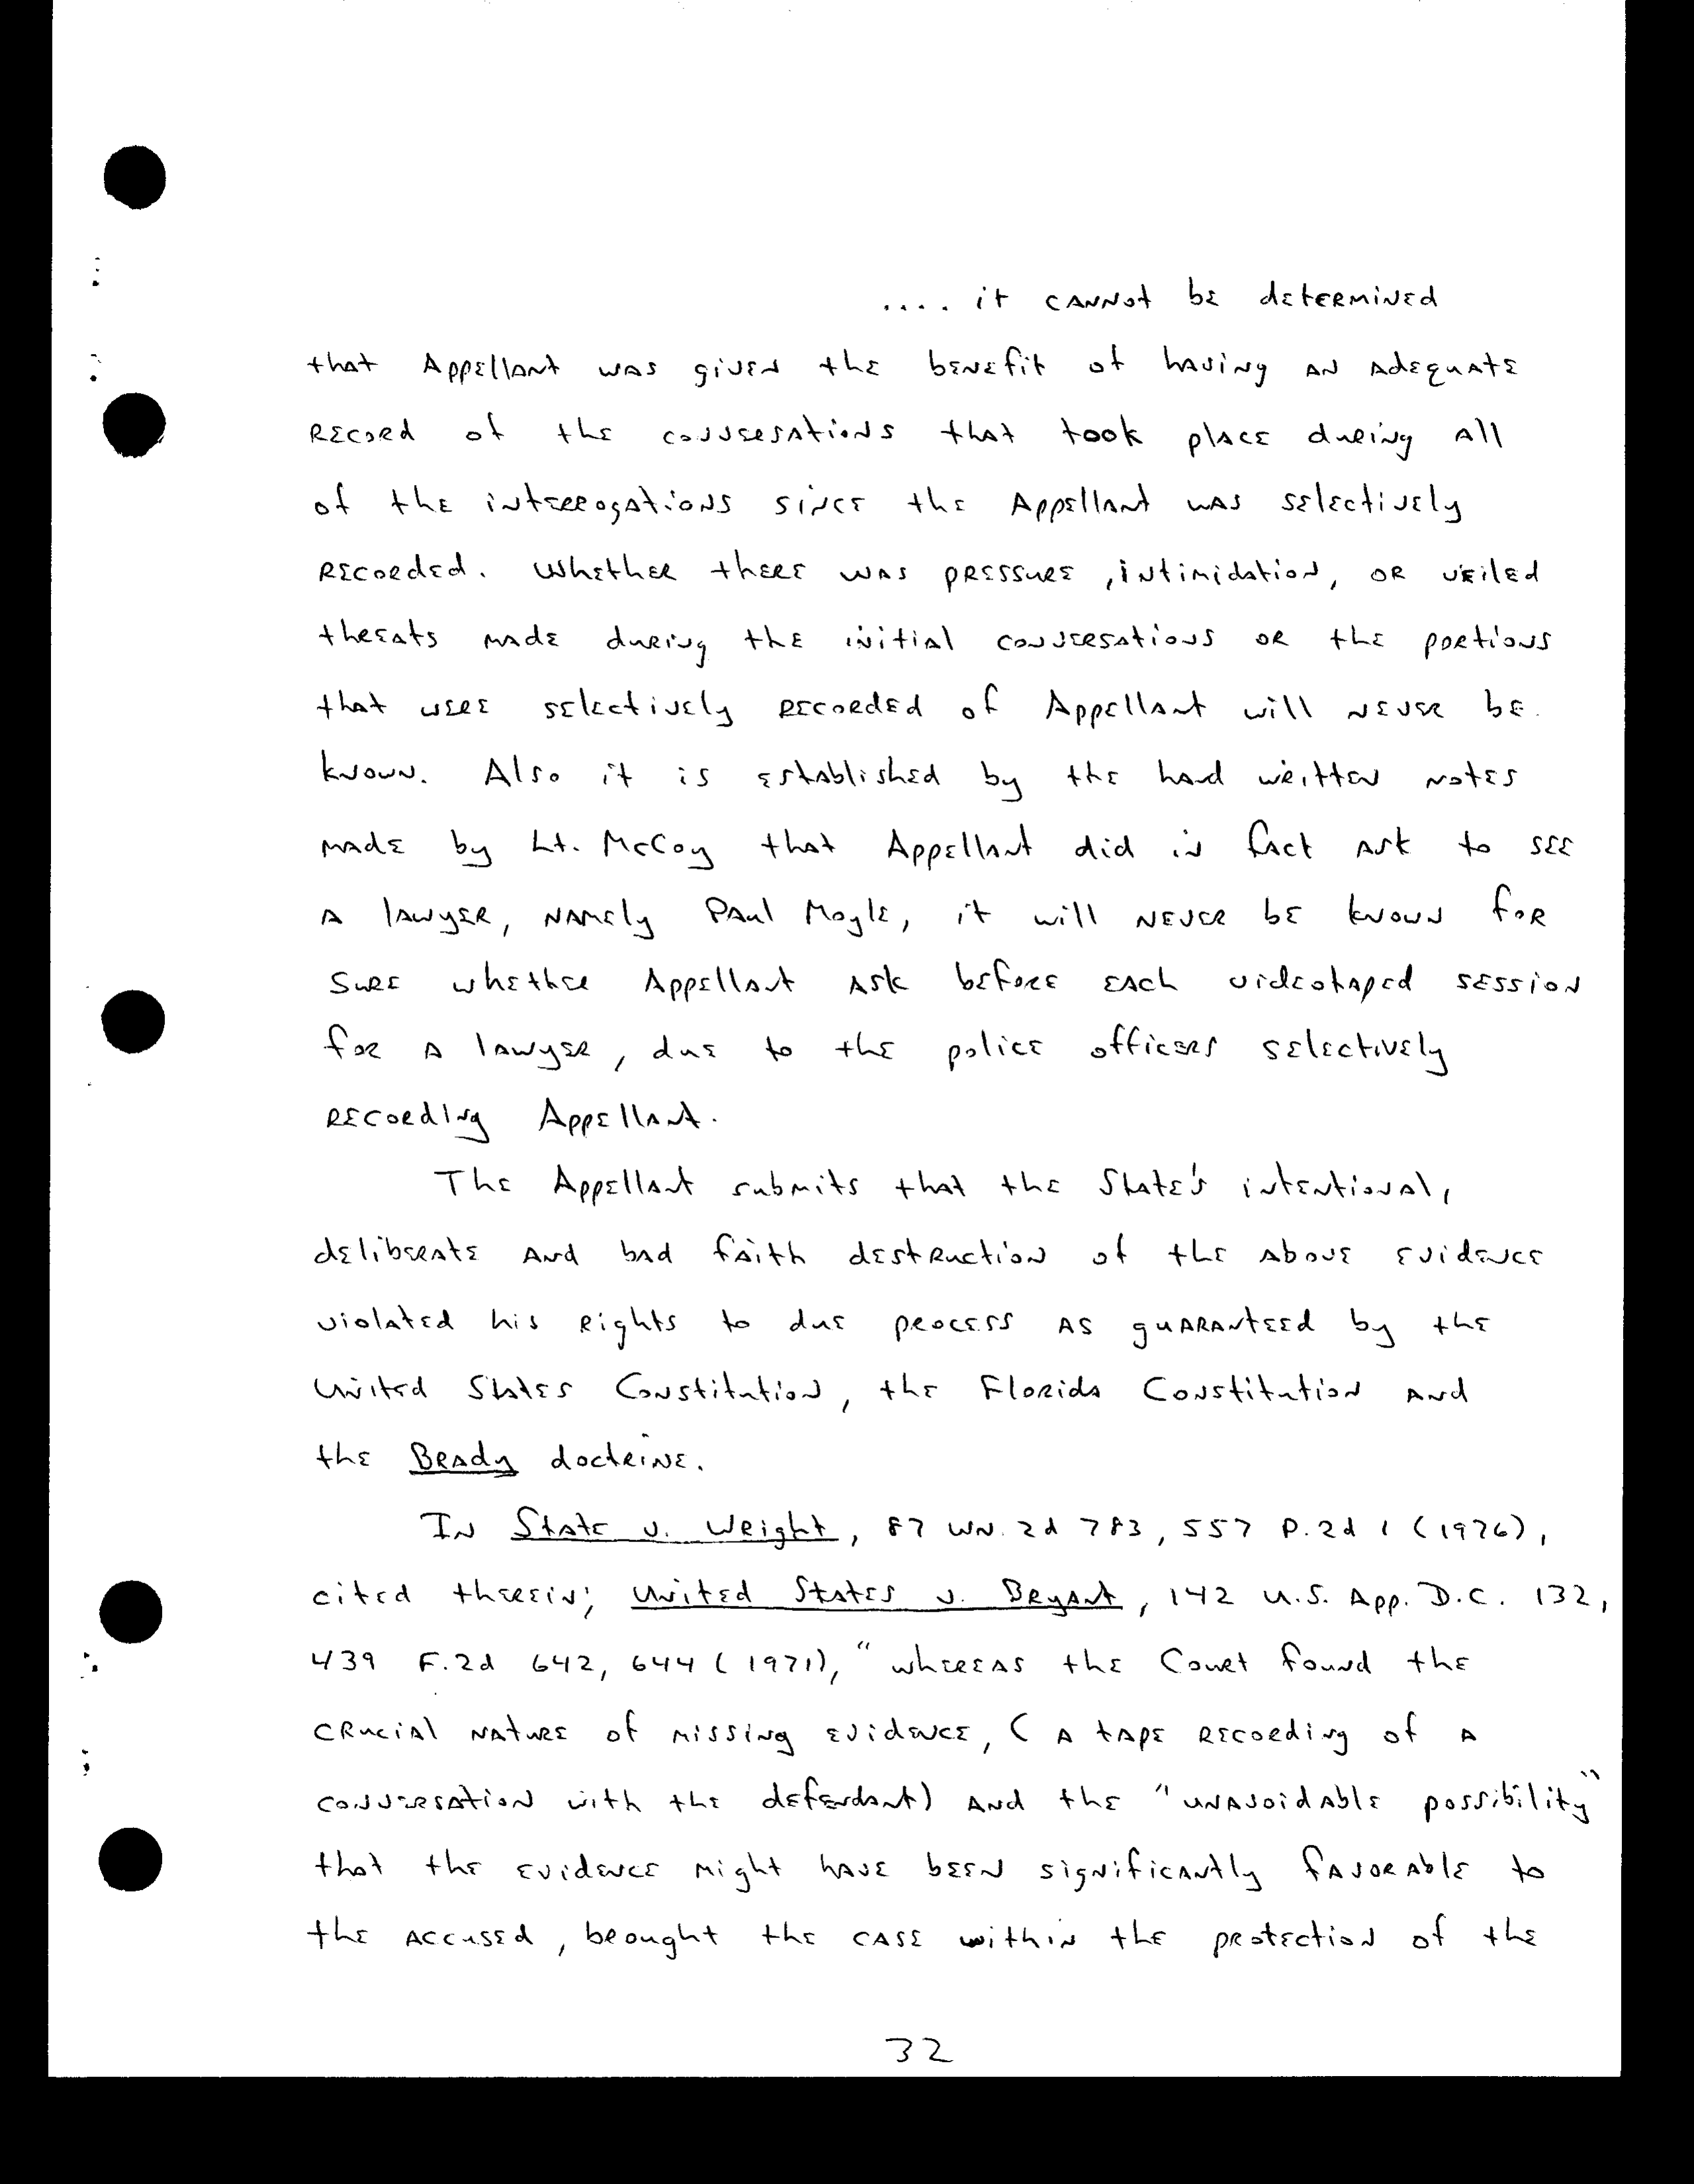 .... it cannot be determined
that Appellant was given the benefit of having an adequate
record of the conversations that took place during all
of the interrogations since the Appellant was selectively
recorded. Whether there was pressure, intimidation, or veiled
threats made during the initial conversations or the portions
that were selectively recorded of Appellant will never be
known. Also it is established by the hand written notes
made by Lt. McCoy that Appellant did in fact ask to see
a lawyer, namely Paul Moyle, it will never be known for
sure whether Appellant ask before each videotaped session
for a lawyer, due to the police officers selectively
recording Appellant.
The Appellant submits that the State's intentional,
deliberate and bad faith destruction of the above evidence
violated his rights to due process as guaranteed by the
United States Constitution, the Florida Constitution and
the Brady doctrine.
In State v. Wright, 87 Wn. 2d 783, 557 P.2d 1 (1976),
cited therein; United States v. Bryant, 142 U.S. App. D.C. 132,
439 F.2d 642, 644 (1971), "whereas the Court found the
crucial nature of missing evidence, (a tape recording of a
conversation with the defendant) and the "unavoidable possibility"
that the evidence might have been significantly favorable to
the accused, brought the case within the protection of the
32